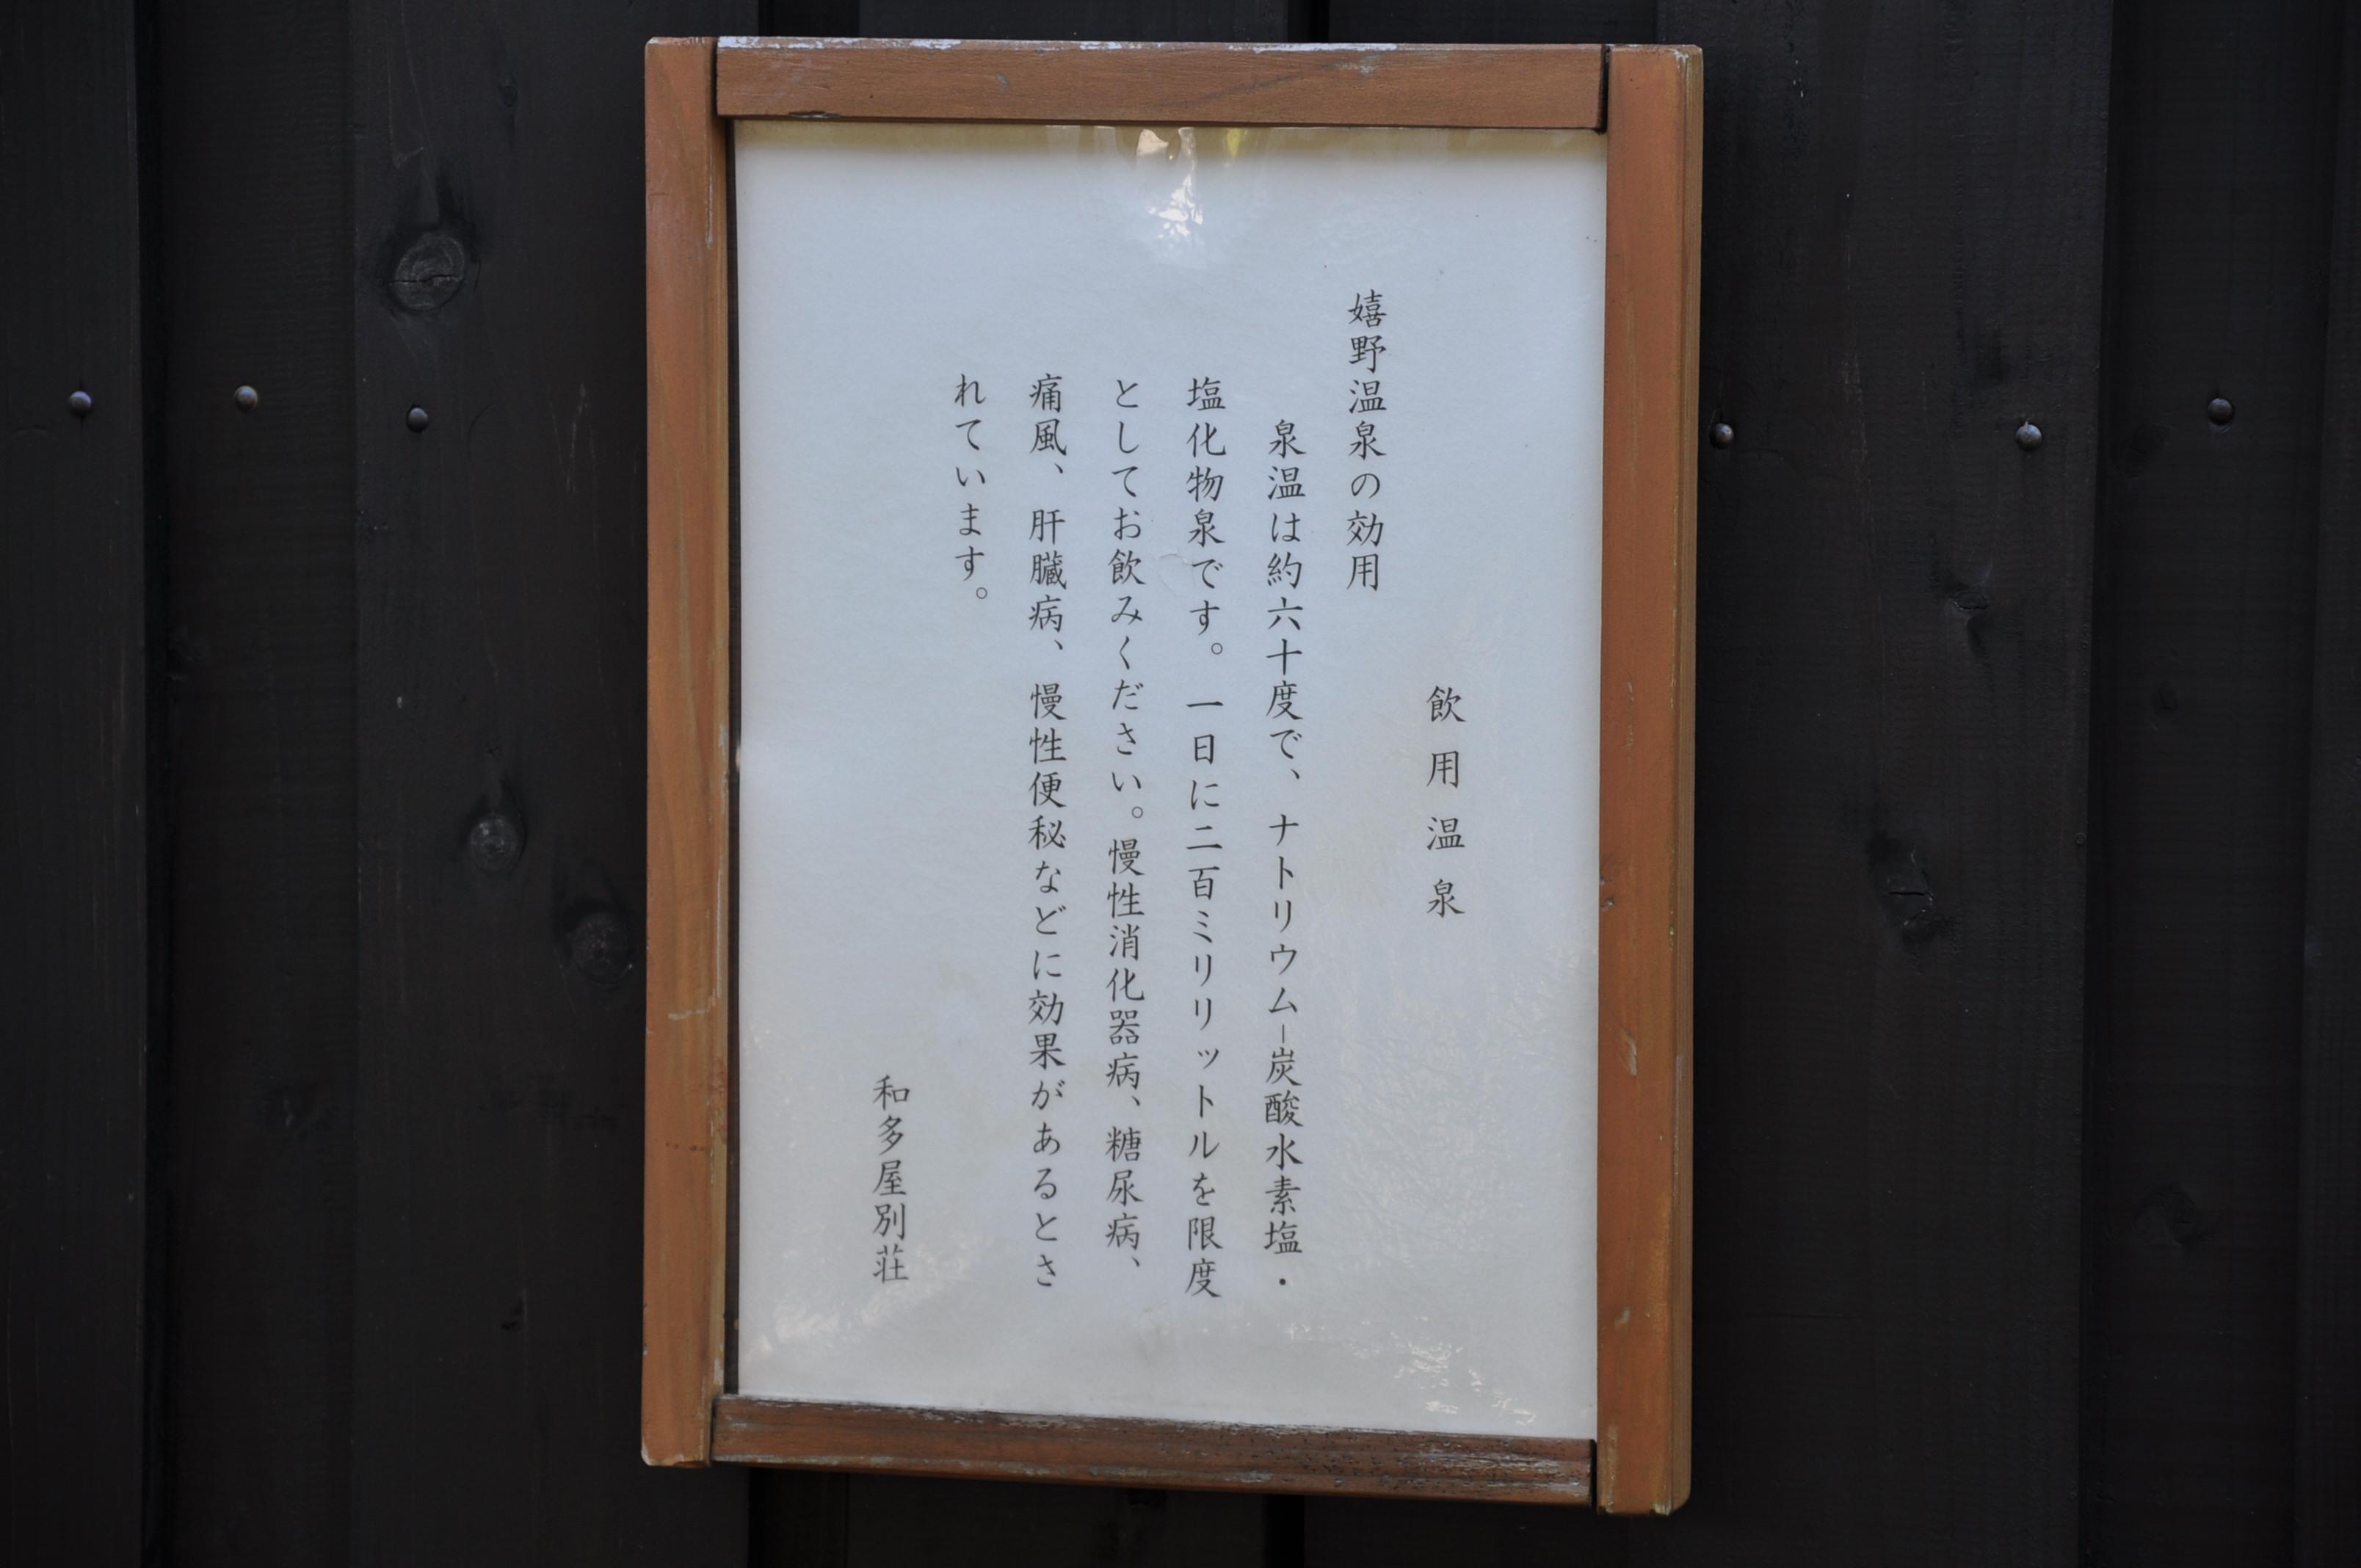 飲用温泉
嬉野温泉の効用
泉温は約六十度で、ナトリウム−炭酸水素塩・
塩化物泉です。一日に二百ミリリットルを限度
としてお飲みください。慢性消化器病、糖尿病、
痛風、肝臓病、慢性便秘などに効果があるとさ
れています。
和多屋別荘